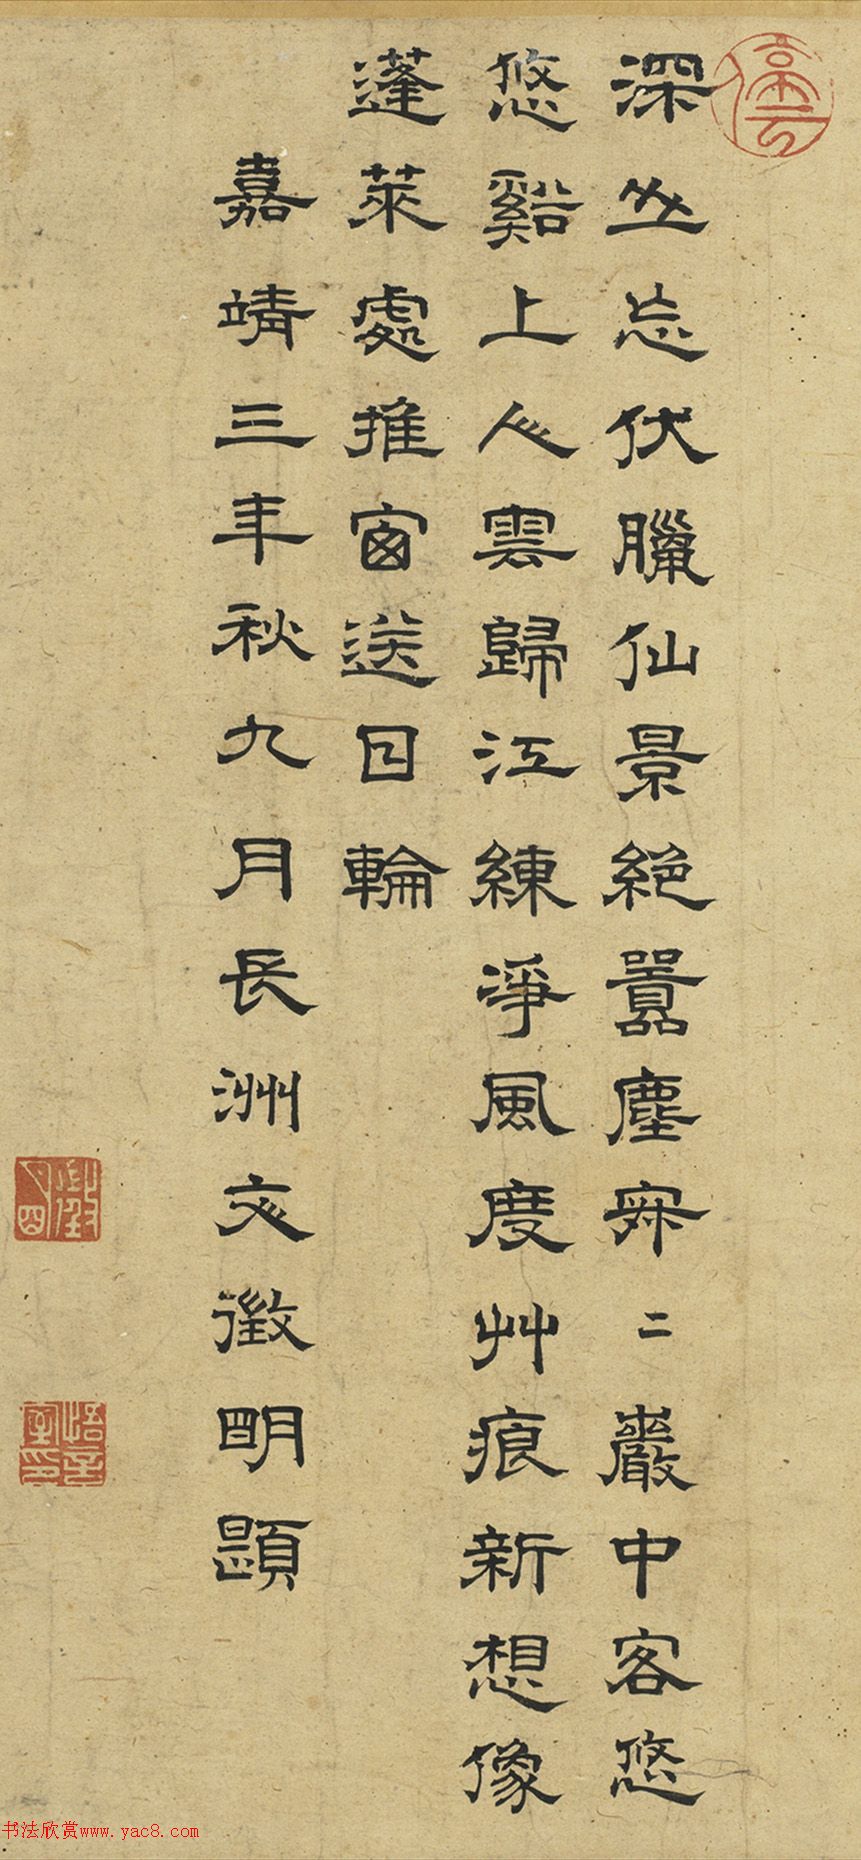 深山忘伏臘仙景絕囂塵寂二巖中客悠
悠谿上人雲歸江練淨風度艸痕新想像
蓬萊處推窗送日輪
嘉靖三年秋九月長洲文徵明題
停雲
悟言室印
书法欣赏www.yac8.com